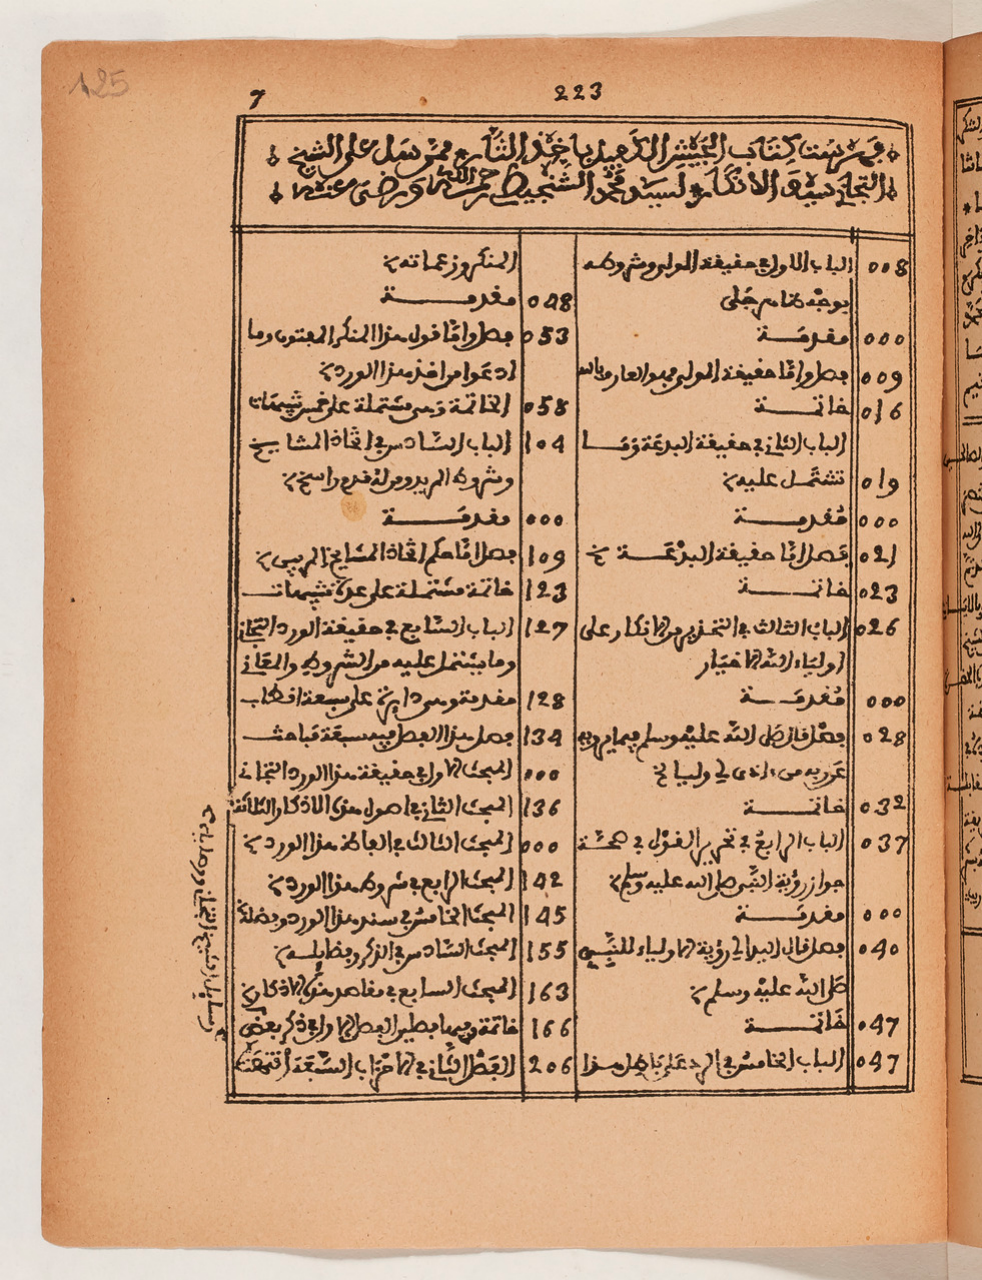 125
7
223
فهرست كتاب الجيش الكفيل بأخذ الثار ممن سل على الشيخ
التجاني سيف الانكار لسيد محمد الشنجيطي رحمه الله ورضي عنه
008 الباب الاول في حقيقة الولي وشروطه
يوجد هنا من جلى
000 مقدمة
009 فصل واما حقيقة الولي فهو العارف بالله
016 خاتمة
الباب الثاني في حقيقة البدعة وما
019 تشتمل عليه
000 مقدمة
021 فصل اما حقيقة البدعة الخ
023 خاتمة
026 الباب الثالث في التحذير من الانكار على
اولياء الله الاخيار
000 مقدمة
028 فصل قال صلى الله عليه وسلم فيما يرويه
عن ربه من اذى لي وليا الخ
032 خاتمة
037 الباب الرابع في تحرير القول في صحة
جواز رؤية النبي صلى الله عليه وسلم
000 مقدمة
040 فصل قال في رؤية الاولياء للنبي
صلى الله عليه وسلم
047 خاتمة
047 الباب الخامس في الرد على باطل هذا
المنكر وزعماته
048 مقدمة
053 فصل واما قول هذا المنكر المفتون وما
ادعوا من اخذ هذا الورد
058 الخاتمة وهي مشتملة على خمس تنبيهات
104 الباب السادس في اتخاذ المشايخ
وشروط المريد ومن له قدم راسخ
000 مقدمة
109 فصل اما حكم اتخاذ المشايخ المربين
123 خاتمة مشتملة على عدة تنبيهات
127 الباب السابع في حقيقة الورد التجاني
وما يشتمل عليه من الشروط والمعاني
128 مقدمة وهي دايرة على سبعة اقطاب
134 فصل هذا الفصل فيه سبعة مباحث
000 المبحث الاول في حقيقة هذا الورد التجاني
136 المبحث الثاني في اصول هذه الاذكار الثلاثة
000 المبحث الثالث في الفاظ هذا الورد
142 المبحث الرابع في شروط هذا الورد
145 المبحث الخامس في سند هذا الورد وفضله
155 المبحث السادس في الذكر وفضايله
163 المبحث السابع في مقاصد هذه الاذكار
166 خاتمة وفيها فصلين الفصل الاول في ذكر بعض
206 الفصل الثاني في الاحزاب السبعة